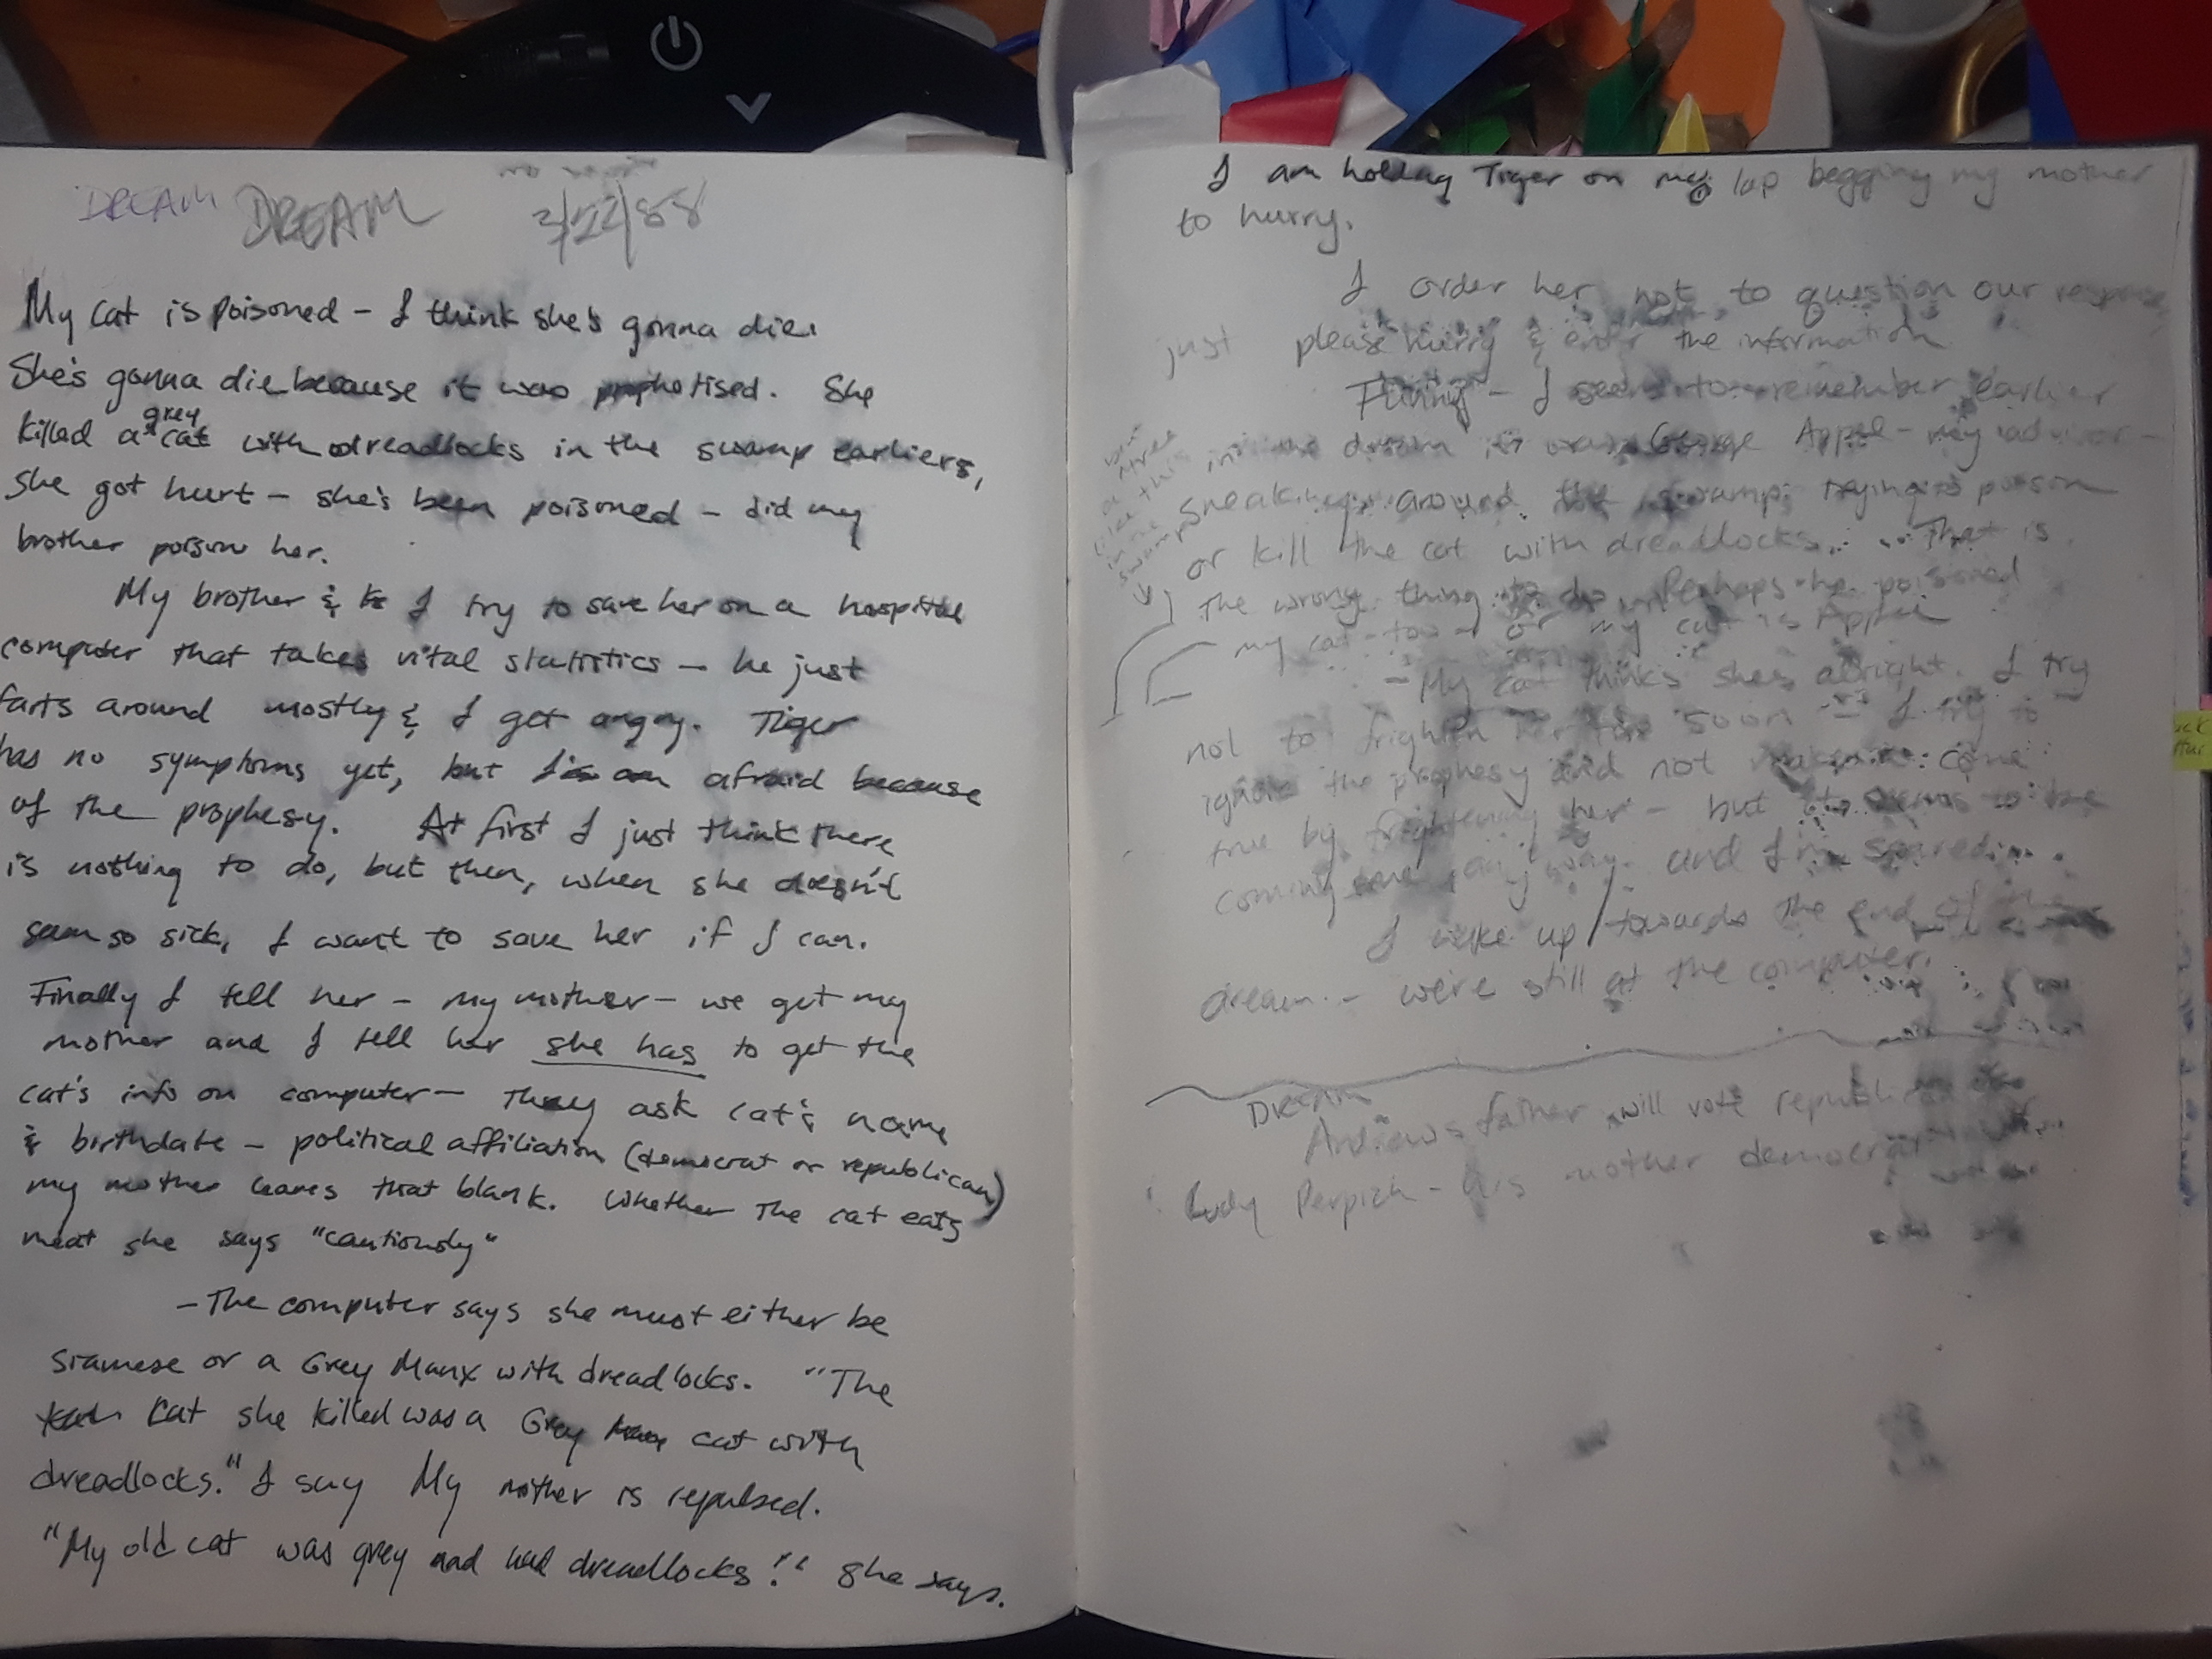 DREAM DREAM 3/22/88
My cat is poisoned - I think she's gonna die.
She's gonna die because it was prophetised. She
killed a grey cat with dreadlocks in the swamp earliers,
she got hurt - she's been poisoned - did my
brother poison her.
My brother & I try to save her on a hospital
computer that takes vital statistics - he just
farts around mostly & I get angry. Tiger
has no symptoms yet, but I am afraid because
of the prophesy. At first I just think there
is nothing to do, but then, when she doesn't
seem so sick, I want to save her if I can.
Finally I tell her - my mother - we get my
mother and I tell her she has to get the
cat's info on computer - They ask cat's name
& birthdate - political affiliation (democrat or republican)
my mother leaves that blank. Whether the cat eats
meat she says "cautiously"
- The computer says she must either be
Siamese or a Grey Manx with dreadlocks. "The
cat she killed was a Grey cat with
dreadlocks." I say My mother is repulsed.
"My old cat was grey and had dreadlocks!" She says.
I am holding Tiger on my lap begging my mother
to hurry.
I order her not to question our response
just please hurry & enter the information
Funny - I seem to remember earlier
in the dream it was George Appel - my advisor -
sneaking around the swamp trying to poison
or kill the cat with dreadlocks... That is
the wrong thing to do. Perhaps he poisoned
my cat too - or my cat is Appel
a tree
like this
in the
swamp
- My cat thinks she's alright. I try
not to frighten her too soon - I try to
ignore the prophesy and not make it come
true by frightening her - but it seems to be
coming true anyway. and I'm
I wake up towards the end of the
dream - we're still at the computer.
Dream
Andrew's father will vote republican
Rudy Perpich - his mother democrat